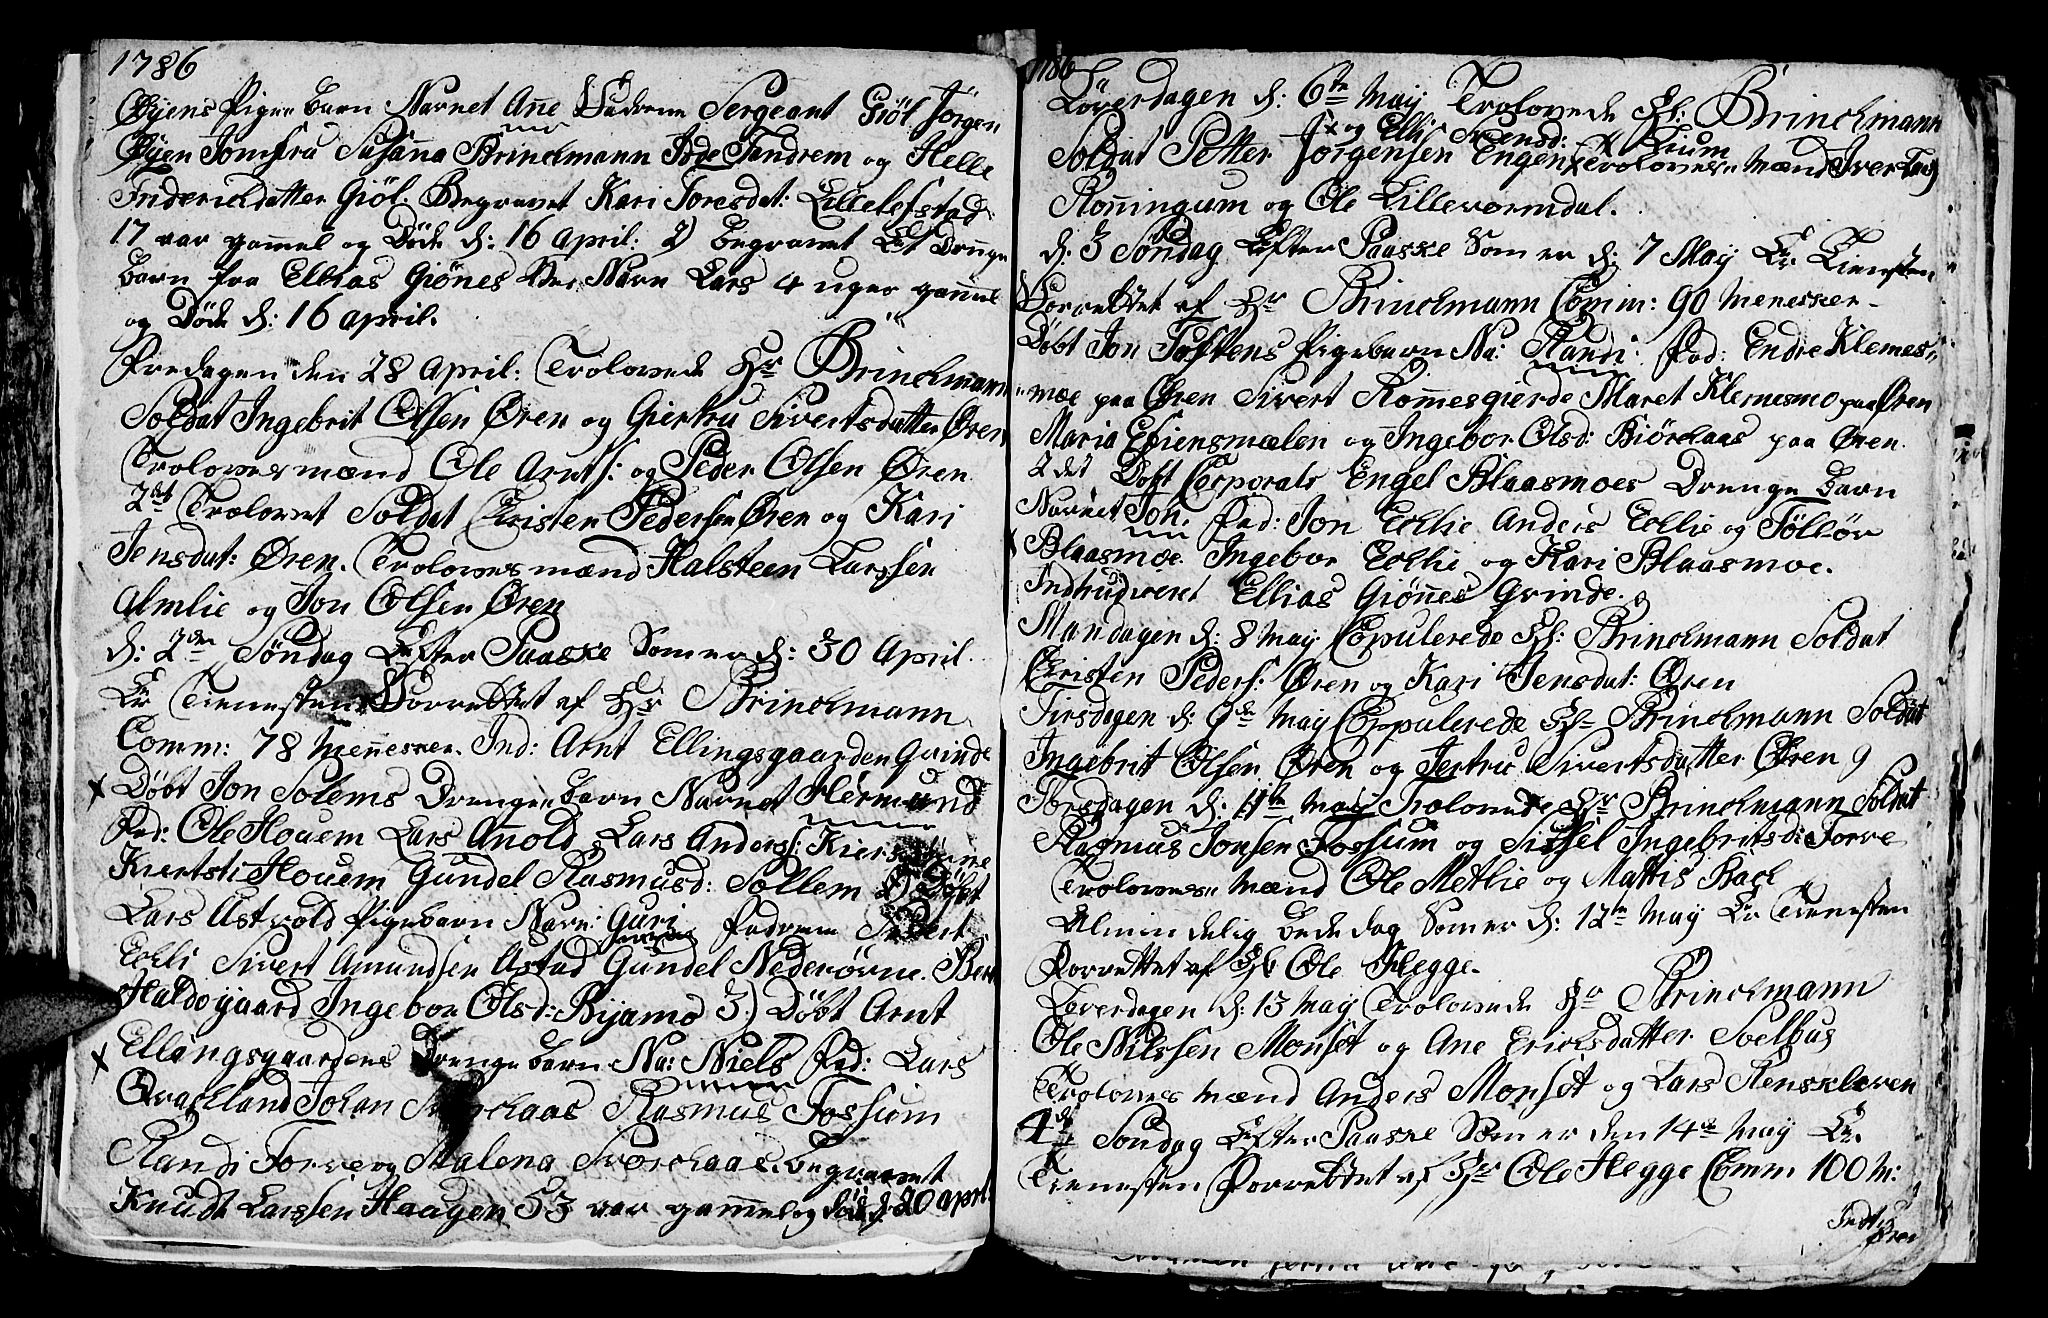 1786
Øyens Pige barn Navnet Ane Fadrene Sergeant Giöl Jörgen
Øyen Jomfru Susanna Brinchmann Tandrem og Helle
Inderidsdatter Giöl. Begravet Kari Toresdat: Lillelefstad
17 aar gammel og Döde d: 16 April: 2) begravet Et Drenge
barn fra Ellias Giönes Ved Navn Lars 4 uger gammel
og Döde d: 16 April.
Fredagen den 28 April: Trolovede Hr Brinchmann
Soldat Ingebrit Olsen Øren og Giertru Sivertsdatter Øren
Troloves mænd Ole Arnts: og Peder Olsen Øren
2det Trolovet Soldat Christen Pedersen Øren og Kari
Jensdat: Øren. Troloves mænd Halsteen Larssen
Almlie og Jon Olsen Øren
d: 2den Söndag Efter Paaske Som er d: 30 April
Er Tienesten Forrettet af Hr Brinchmann
Comm: 78 Mennesker. Ind: Arnt Ellingsgaarden Qvinde
x Döbt Jon Solems Drenge barn Navnet Hermund
Fad: Ole Houem Lars Anold Lars Anders:
Kiersti Houem Gundel Rasmusd: Sollem 2) Döbt
Lars Astvold Pigebarn Navn: Guri Fadrene Sivert
Eolli Sivert Amundsen Astad Gundel Nederövne.
Haldogaard Ingebor Olsd: Byamo 3) Döbt Arnt
x Ellingsgaardens Drenge barn Na: Niels Fad: Lars
Qvachland Johan Rasmus Fossum
Randi Torve og Malena Svorchaas. begravet
Knudt Larssen Haagen 53 aar gammel og död d: 20 April
1786
Löverdagen d: 6te May Trolovede Hr: Brinchmann
x og Elli Svensd: Trium
Soldat Petter Jörgensen Engen x Troloves mænd Iver
Ronningum og Ole Lillevormdal.
d: 3 Söndag Efter Paaske Som er d: 7 May Er Tiensten
Forrettet af Hr Brinchmann Comm: 90 mennesker
Döbt Jon Toftens Pigebarn Na: Randi. Fad: Endre Klemes
moe paa Øren Sivert Rommesgierde Maret Klemesmo paa Øren
Maria Estensmælen og Ingebor Olsd: Biörchaas paa Øren
2det Döbt Corporals Engel Blaasmoes Drenge barn
Navnet Jon. Fad: Jon Eollie Anders Eollie og Tölløv
x Blaasmoe Ingebor Eollie og Kari Blaasmoe.
Indtrudveret Ellias Giönnes Qvinde.
Mandagen d: 8 May Copulerede Hr: Brinchmann Soldat
Christen Peders: Øren og Kari Jensdat: Øren
Tirsdagen d: 9de May Copulerede Hr Brinchmann Soldat
Ingebrit Olsen Øren og Jertru Sivertsdatter Øren
Torsdagen d: 11te May Trolovede Hr Brinchmann Soldat
Rasmus Jonsen Fossum og Sissel Ingebritsd: Torve
Troloves mænd Ole Methie og Mattis Bach
Almindelig bededag Som er d: 12te May Er Tienesten
Forrettet af Hr Ole Hegge.
Löverdagen d: 13 May Trolovede Hr Brinchmann
Ole Nilssen Monset og Ane Ericksdatter Soelbus
Troloves mænd Anders Monset og Lars Renskleven
4de Söndag Efter Paaske Som er den 14de May Er
Tienesten Forrettet af Hr Ole Hegge Comm 100 M: